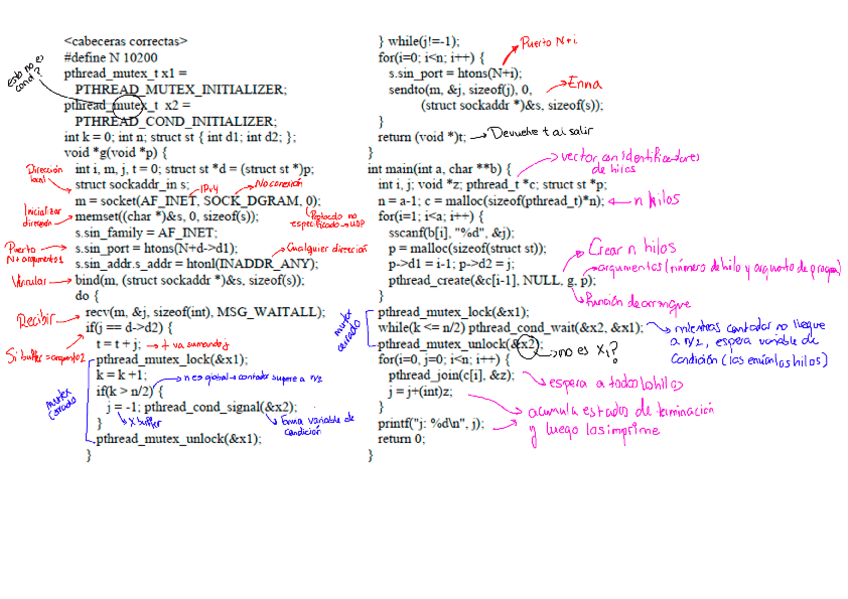 <cabeceras correctas>
#define N 10200
esto no es cond?
pthread_mutex_t x1 =
PTHREAD_MUTEX_INITIALIZER;
pthread_mutex_t x2 =
PTHREAD_COND_INITIALIZER;
int k = 0; int n; struct st { int d1; int d2; };
void *g(void *p) {
int i, m, j, t = 0; struct st *d = (struct st *)p;
Dirección local
struct sockaddr_in s;
IPv4
No conexión
m = socket(AF_INET, SOCK_DGRAM, 0);
Inicializar dirección
memset((char *)&s, 0, sizeof(s));
Protocolo no especificado → UDP
s.sin_family = AF_INET;
Puerto N+argumento1
s.sin_port = htons(N+d->d1);
Cualquier dirección
s.sin_addr.s_addr = htonl(INADDR_ANY);
Vincular
bind(m, (struct sockaddr *)&s, sizeof(s));
do {
Recibir
recv(m, &j, sizeof(int), MSG_WAITALL);
Si buffer = argumento2
if(j == d->d2) {
t = t + j; → t va sumando j
mutex cerrado
pthread_mutex_lock(&x1);
k = k +1;
if(k > n/2) {
n es global → contador supere a n/2
j = -1; pthread_cond_signal(&x2);
X buffer
Envia variable de condición
}
pthread_mutex_unlock(&x1);
}
} while(j!=-1);
Puerto N+i
for(i=0; i<n; i++) {
s.sin_port = htons(N+i);
Envia
sendto(m, &j, sizeof(j), 0,
(struct sockaddr *)&s, sizeof(s));
}
return (void *)t; → Devuelve t al salir
}
int main(int a, char **b) {
vector con identificadores de hilos
int i, j; void *z; pthread_t *c; struct st *p;
n = a-1; c = malloc(sizeof(pthread_t)*n); ← n hilos
for(i=1; i<a; i++) {
sscanf(b[i], "%d", &j);
Crear n hilos
p = malloc(sizeof(struct st));
p->d1 = i-1; p->d2 = j;
argumentos (número de hilo y argumento de programa)
pthread_create(&c[i-1], NULL, g, p);
función de arranque
}
mutex cerrado
pthread_mutex_lock(&x1);
while(k <= n/2) pthread_cond_wait(&x2, &x1);
mientras contador no llegue a n/2, espera variable de condición (las envían los hilos)
pthread_mutex_unlock(&x2); → no es x1?
for(i=0, j=0; i<n; i++) {
pthread_join(c[i], &z);
espera a todos los hilos
j = j+(int)z;
}
acumula estados de terminación
printf("j: %d\n", j);
y luego los imprime
return 0;
}